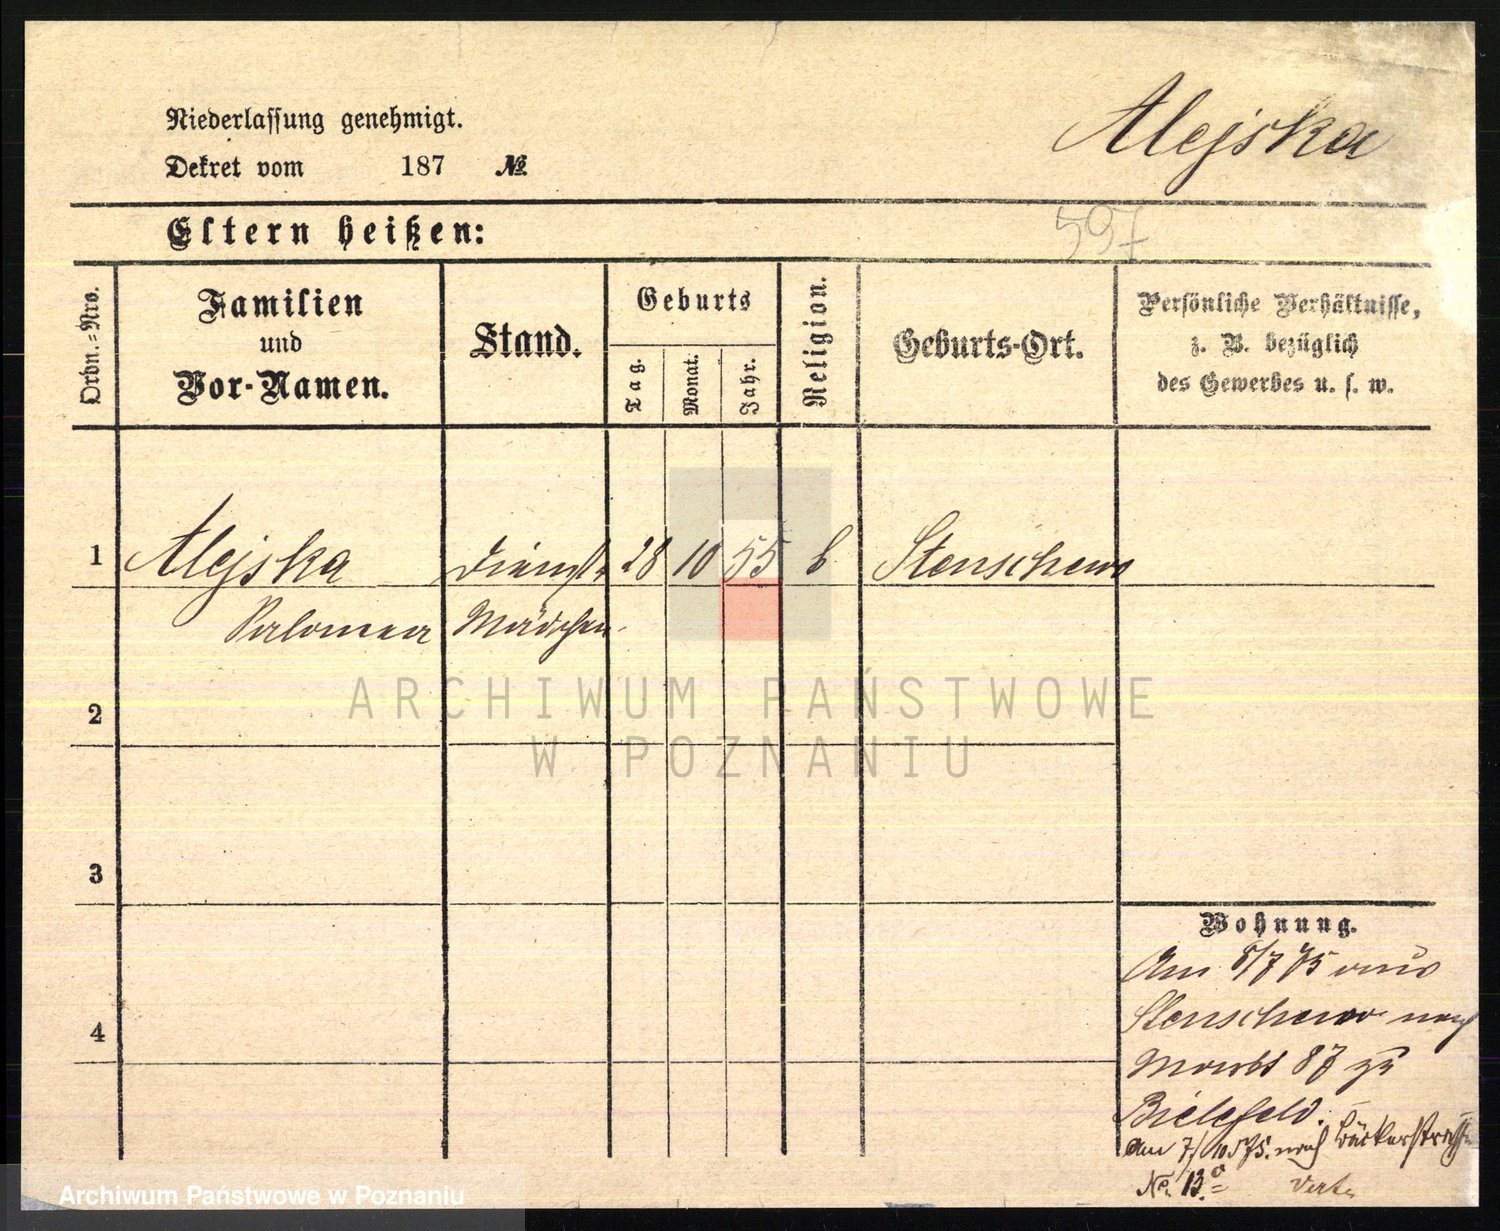 Niederlassung genehmigt.
Alejska
Dekret vom 187 №
Eltern heißen:
597
Ordn.=Nro.
Familien
und
Vor-Namen.
Stand.
Geburts
Tag.
Monat.
Jahr.
Religion.
Geburts-Ort.
Persönliche Verhältnisse,
z. B. bezüglich
des Gewerbes u. s. w.
1 Alejska Dienst 28 10 55 Stenschewo
Salomea Mädchen
ARCHIWUM PAŃSTWOWE
W POZNANIU
2
3
4
Wohnung.
Am 5/7 75 aus
Stenschewo nach
Markt 87 zu
Bielefeld.
Am 7/10 75. nach Bäckerstraße
No. 13.a
Verte
Archiwum Państwowe w Poznaniu